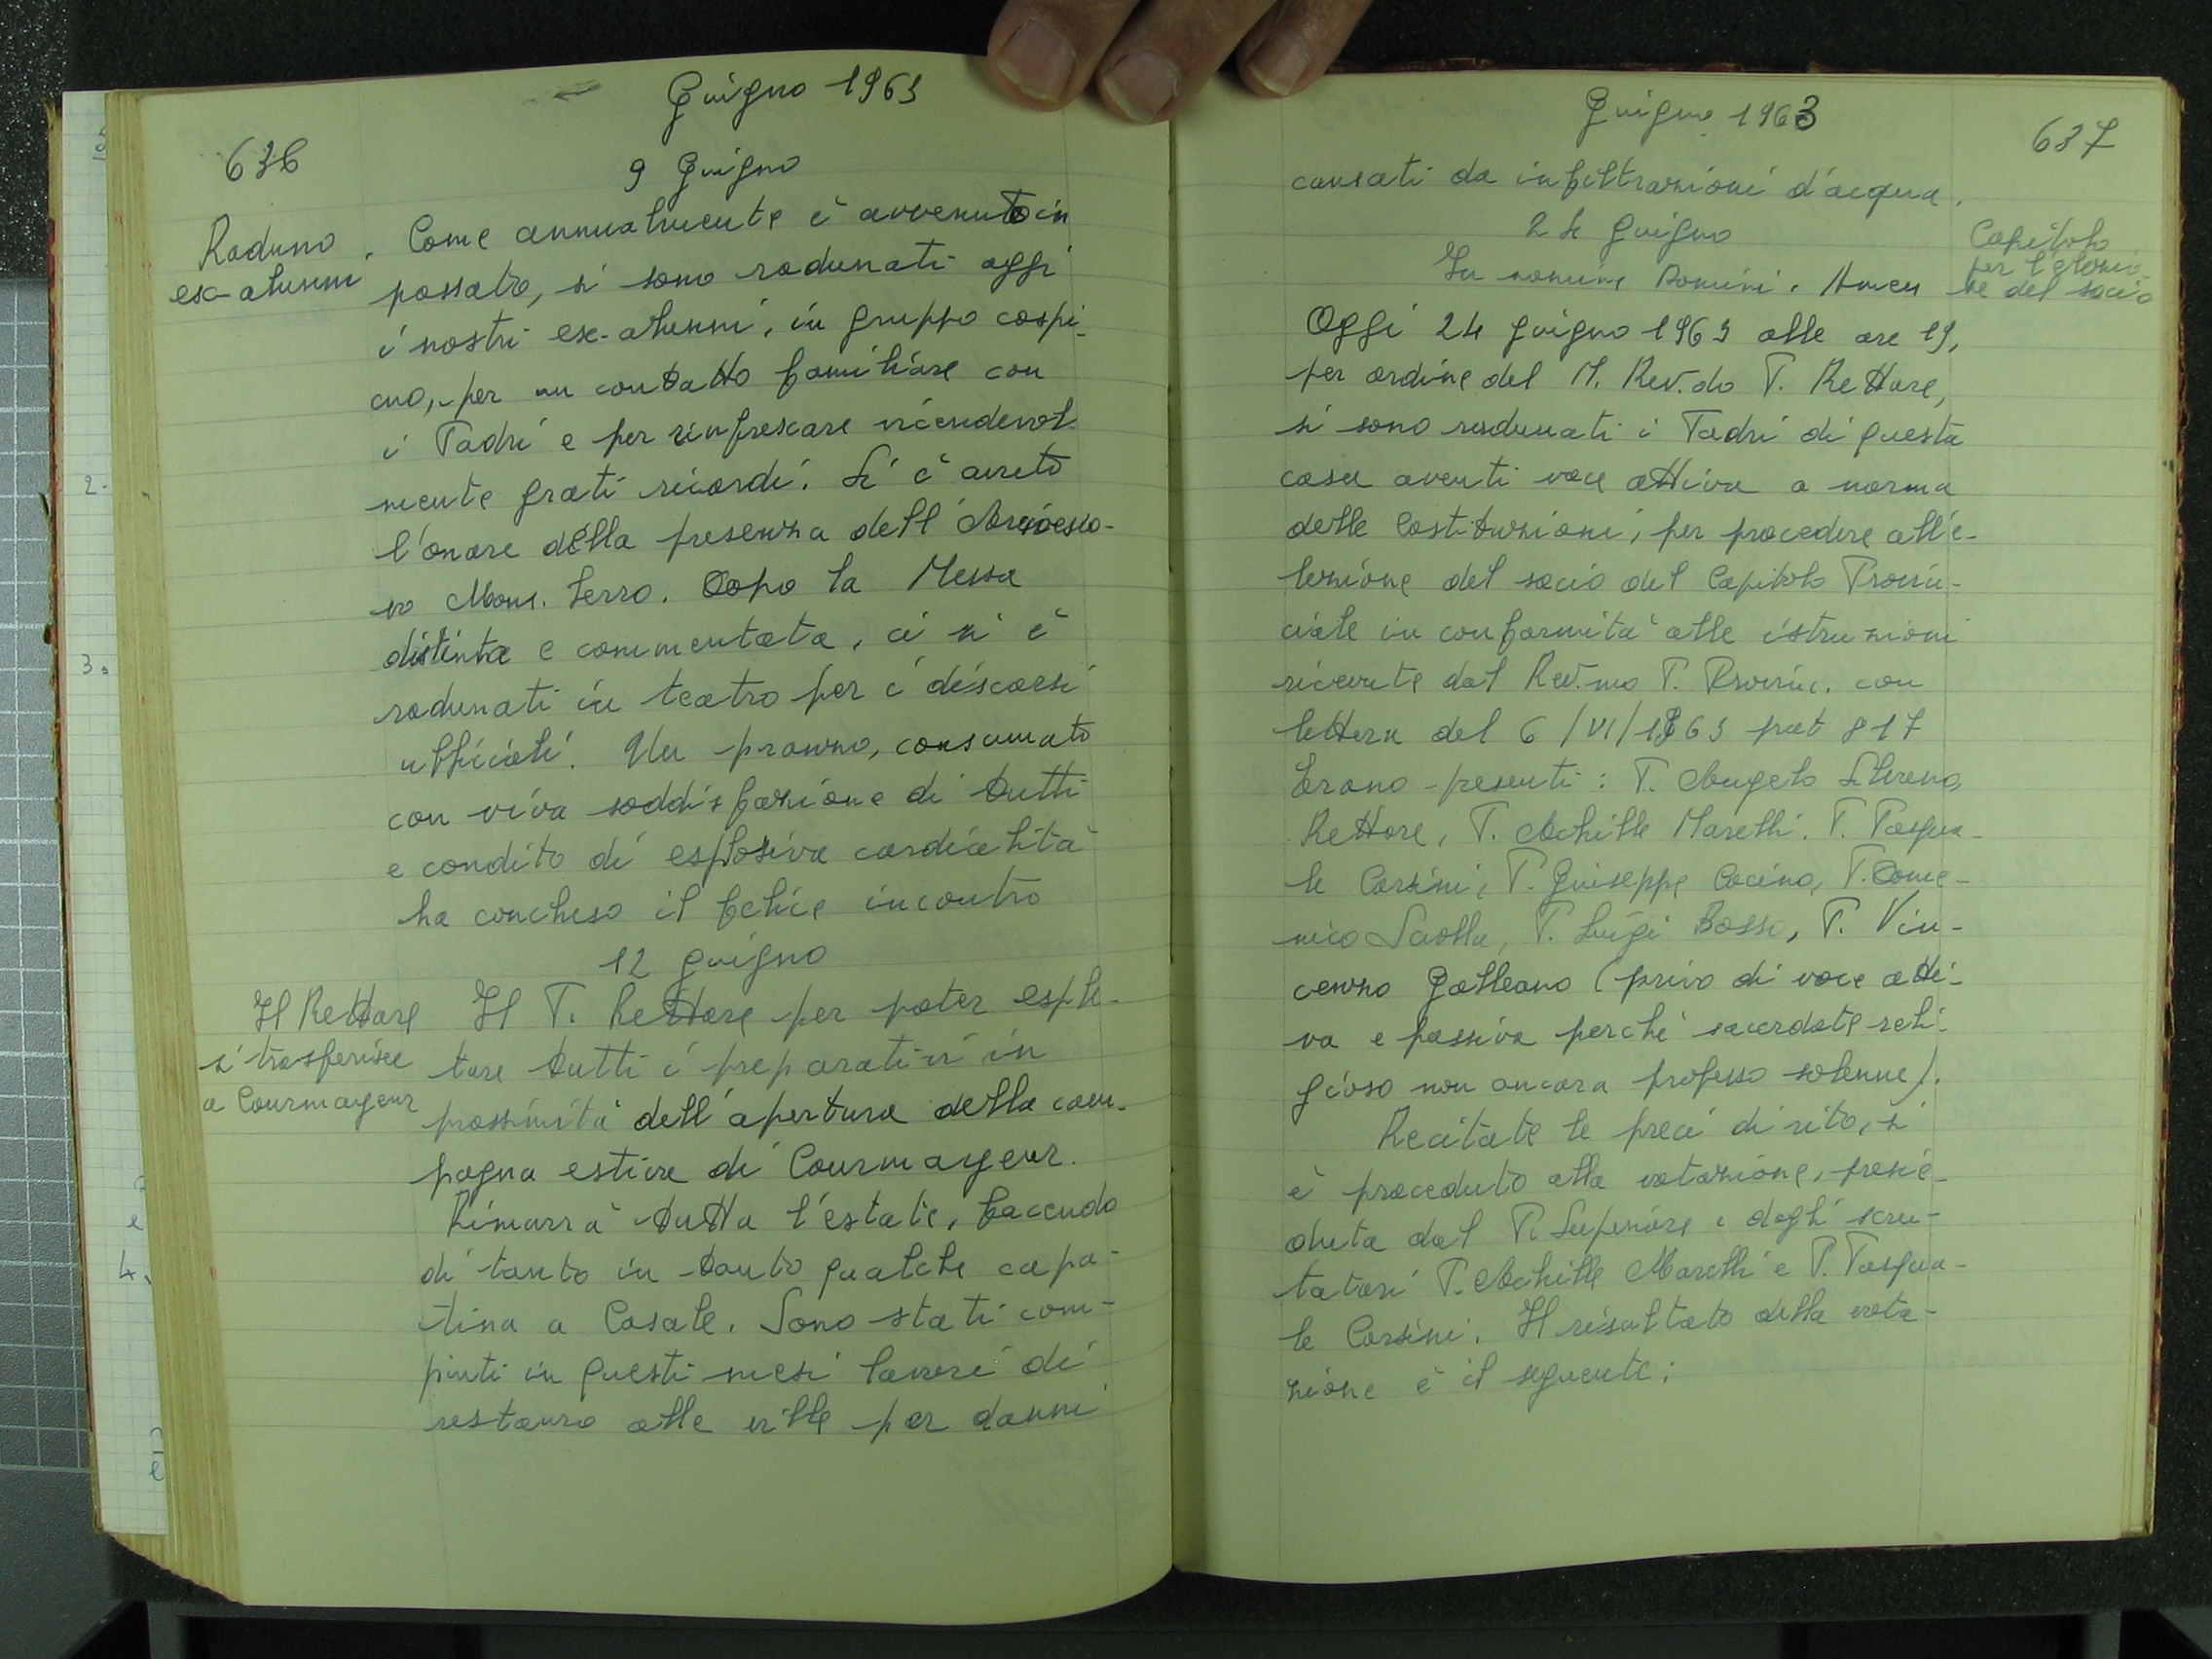 Giugno 1963
636
9 Giugno
Raduno
ex-alunni
Come annualmente è avvenuto in
passato, si sono radunati oggi
i nostri ex-alunni, in gruppo cospi-
cuo, per un contatto familiare con
i Padri e per rinfrescare vicendevol
mente grati ricordi. Si è avuto
l'onore della presenza dell'Arcivesco-
vo Mons. Ferro. Dopo la Messa
distinta e commentata, ci si è
radunati in teatro per i discorsi
ufficiali. Un pranzo, consumato
con viva soddisfazione di tutti
e condito di esplosiva cordialità
ha concluso il felice incontro
12 giugno
Il Rettore
si trasferisce
a Courmayeur
Il P. Rettore per poter esple-
tare tutti i preparativi in
prossimità dell'apertura della cam-
pagna estiva di Courmayeur.
Rimarrà tutta l'estate, facendo
di tanto in tanto qualche capa-
tina a Casale. Sono stati com-
piuti in questi mesi lavori di
restauro alle ville per danni
Giugno 1963
637
causati da infiltrazioni d'acqua.
24 giugno
Capitolo
per l'elezio-
ne del socio
In nomine Domini. Amen
Oggi 24 giugno 1963 alle ore 19,
per ordine del M. Rev.do P. Rettore,
si sono radunati i Padri di questa
casa aventi voce attiva a norma
delle Costituzioni, per procedere all'e-
lezione del socio del Capitolo Provin-
ciale in conformità alle istruzioni
ricevute dal Rev.mo P. Provinc. con
lettera del 6/VI/1963 prot 817
Erano presenti: P. Angelo
Rettore, P. Achille Marelli, P. Pasqua-
le Corsini, P. Giuseppe Cocino, P. Dome-
nico P. Luigi Bosso, P. Vin-
cenzo Galleano (privo di voce atti-
va e passiva perché sacerdote reli-
gioso non ancora professo solenne).
Recitate le preci di rito, si
è proceduto alla votazione, presie-
duta dal P. Superiore e dagli scru-
tatori P. Achille Marelli e P. Pasqua-
le Corsini. Il risultato della vota-
zione è il seguente:
2.
3.
4.